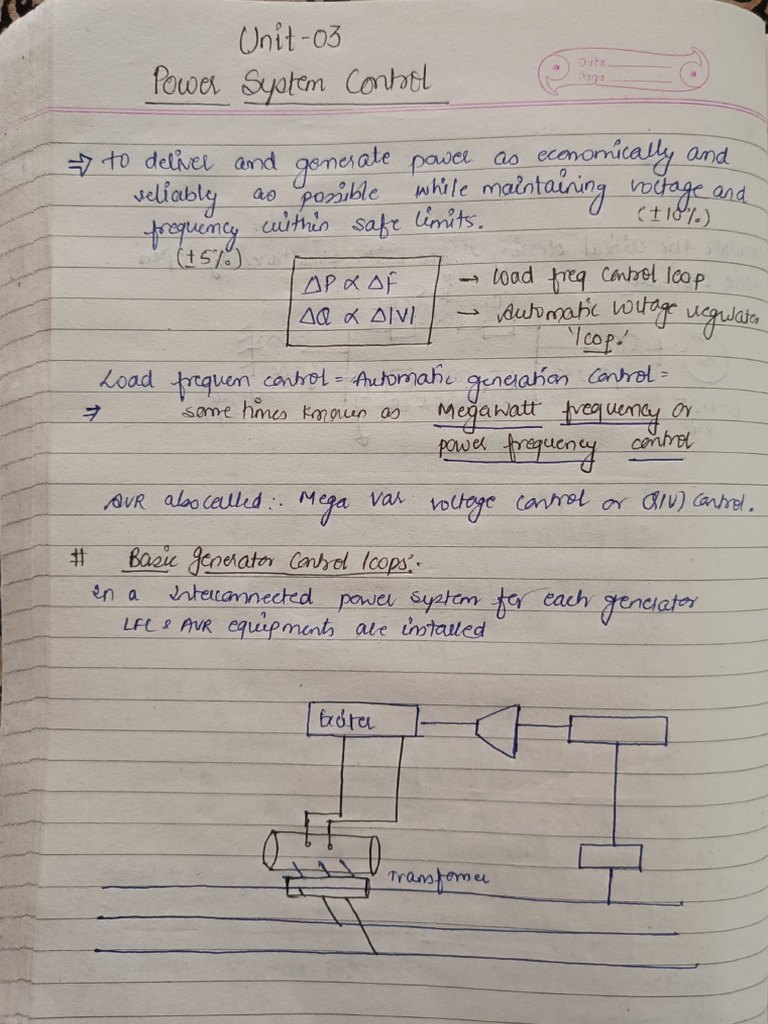 Unit-03
Power System Control
Date
Page
⇒ to deliver and generate power as economically and
reliably as possible while maintaining voltage and
(±10%)
frequency within safe limits.
(±5%)
ΔP ∝ ΔF → Load freq control loop
ΔQ ∝ Δ|V| → Automatic voltage regulator
'loop.'
Load frequen control = Automatic generation control =
⇒ some times known as Megawatt frequency or
power frequency control
AVR also called:. Mega Var voltage control or Q(V) control.
# Basic Generator Control loops:-
In a interconnected power system for each generator
LFC & AVR equipments are installed
Exciter
Transformer